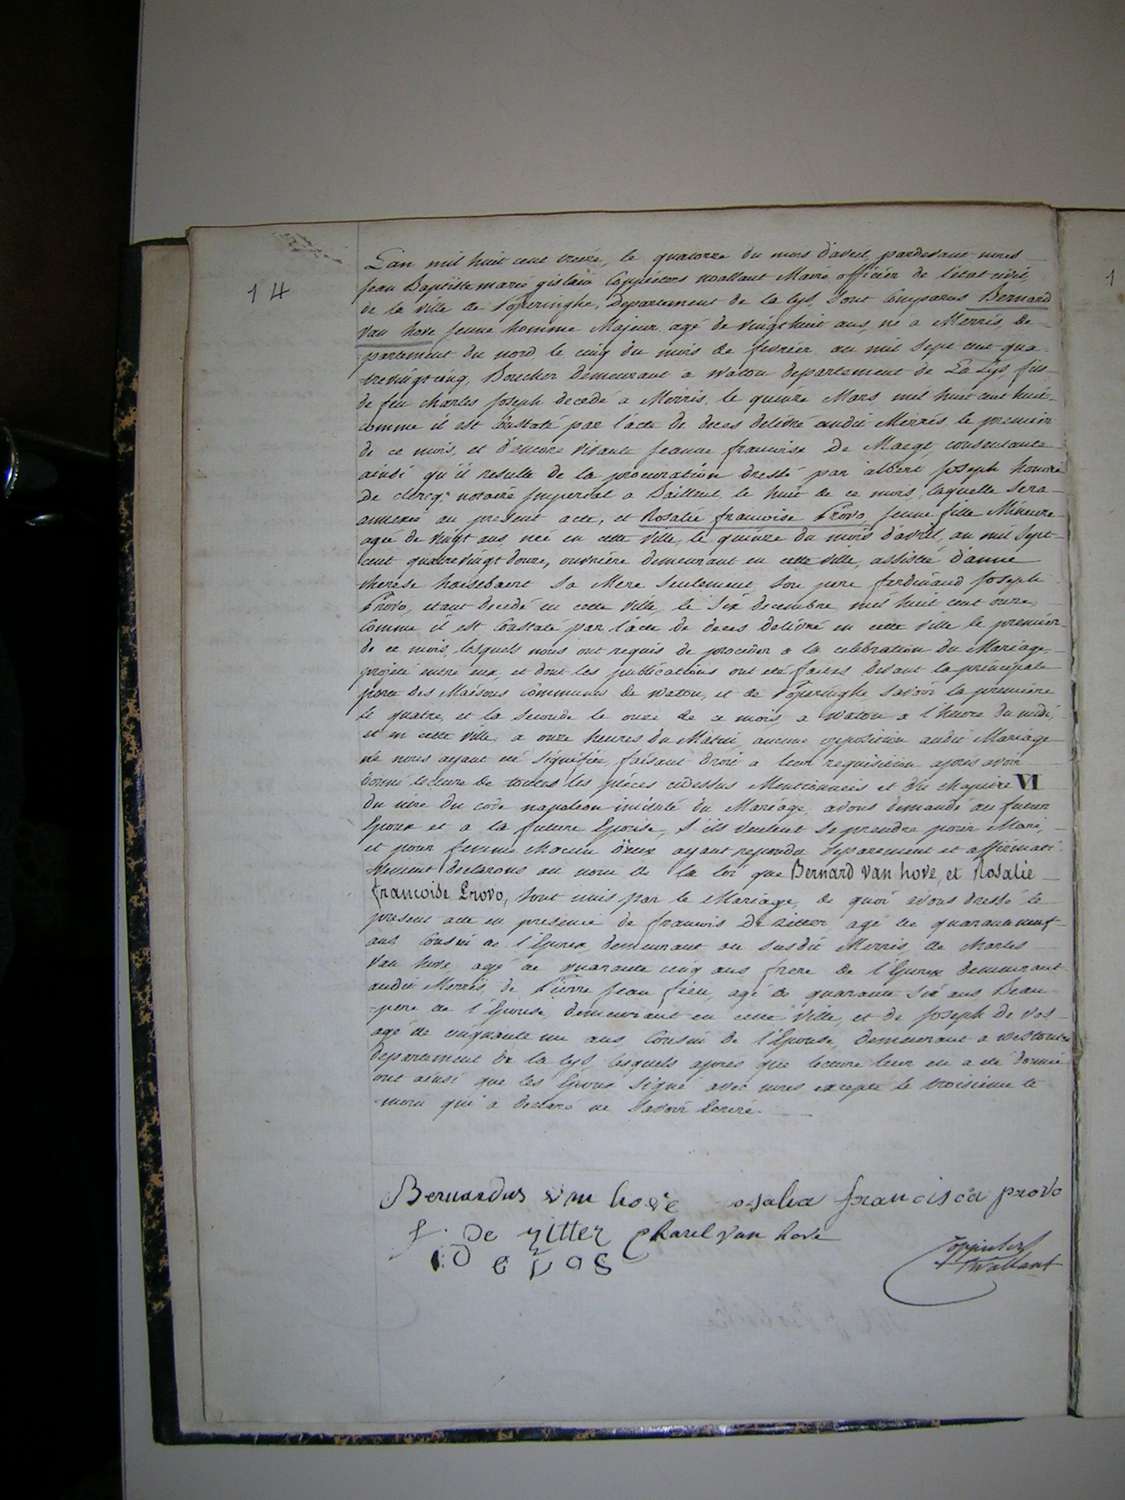 14
L'an mil huit cent treize, le quatorze du mois d'avril, pardevant nous
Jean Baptiste marie gislain Coppieters wallant Maire officier de l'état civil,
de la ville de Poperinghe, Departement de la Lys, sont Comparus Bernard
van hove jeune homme Majeur agé de vingt huit ans né a Merris, De-
partement du nord le cinq du mois de fevrier an mil sept cent qua-
trevingt cinq, Boucher demeurant a watou departement de La Lys, fils
de feu charles Joseph decedé a Merris, le quinze Mars mil huit cent huit
comme il est Constaté par l'acte de deces delivré audit Merris le premier
de ce mois, et d'encore vivante jeanne francoise De Maegt consentante
ainsi qu'il resulte de la procuration dressé par albert Joseph honoré
De clercq notaire Imperial a Bailleul le huit de ce mois, laquelle sera
annexée au present acte, et Rosalie francoise Provo jeune fille Mineure
agée de vingt ans née en cette ville, le quinze du mois d'avril, an mil sept
cent quatrevingt douze, ouvrière demeurant en cette ville, assistée d'anne
therese sa Mere seulement son pere ferdinand Joseph
Provo, etant decedé en cette ville, le six decembre mil huit cent onze,
Comme il est Constaté par l'acte de deces delivré en cette ville le premier
de ce mois, lesquels nous ont requis de proceder a la celebration du Mariage
projeté entre eux, et dont les publications ont été faites devant la principale
porte des Maisons Communes de watou, et de Poperinghe savoir la premiere
le quatre, et la seconde le onze de ce mois, a watou a l'heure du midi,
et en cette ville, a onze heures du Matin, aucune opposition audit Mariage
ne nous ayant été signifiée, faisant droit a leur requisition apres avoir
donné lecture de toutes les pièces cidessus Mentionnées et du chapitre VI
du titre du code napoleon intitulé du Mariage, avons demandé au futur
Epoux et a la future Epouse, s'ils veulent se prendre pour Mari,
et pour femme chacun d'eux ayant repondu separement et affirmati-
vement declarons au nom de la loi que Bernard van hove, et Rosalie
francoise Provo, sont unis par le Mariage, de quoi avons dressé le
present acte en presence de francois De Ritter agé de quarante neuf
ans Cousin de l'Epoux demeurant au susdit Merris, de charles
van hove, agé de quarante cinq ans frere de l'Epoux demeurant
audit Merris, de Pierre jean fieu, agé de quarante six ans Beau
-pere de l'Epouse, demeurant en cette ville, et de Joseph de vos
agé de cinquante un ans Cousin de l'Epouse, demeurant a
departement de la Lys, lesquels apres que lecture leur en a été donné
ont ainsi que les Epoux signé avec nous excepté le troisieme te
-moin qui a declaré ne savoir Ecrire.
Bernardus van hove rosalia francisca provo
f De ritter Charel van hove
I D e V o s
Coppieters
Wallant